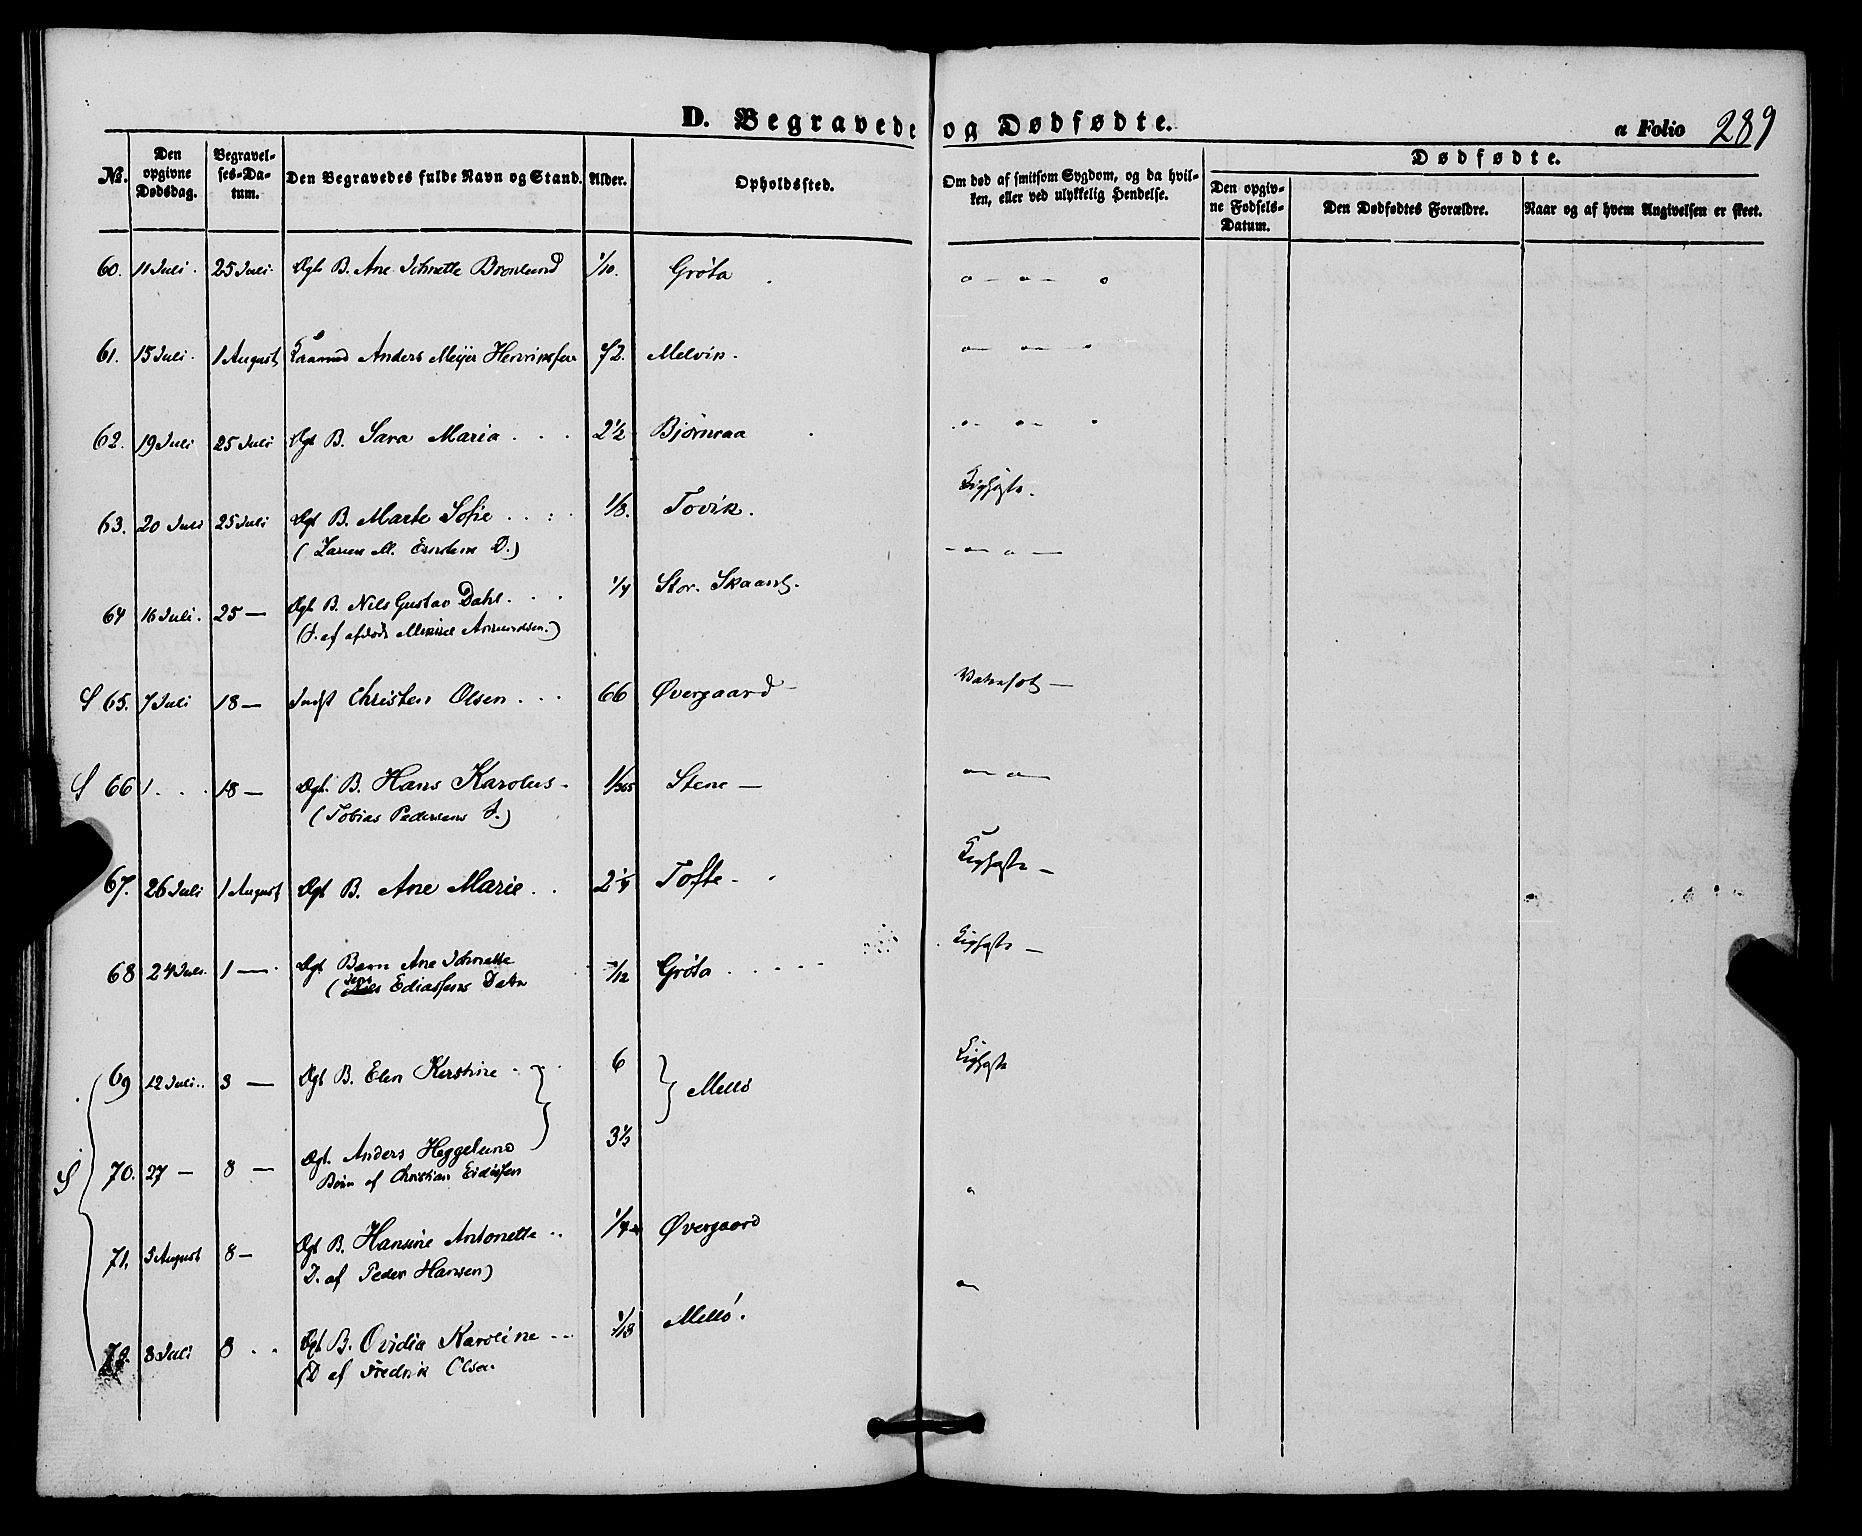 D. Begravede og Dødfødte.
a Folio 289
No.
Den opgivne Dødsdag.
Begravelses-Datum.
Den Begravedes fulde Navn og Stand.
Alder.
Opholdssted.
Om død af smitsom Sygdom, og da hvilken, eller ved ulykkelig Hendelse.
Dødfødte.
Den opgivne Fødsels-Datum.
Den Dødfødtes Forældre.
Naar og af hvem Angivelsen er skeet.
60. 11 Juli. 25 Juli. Ægt B. Ane Bronlund 1/10. Grøta
61. 15 Juli. 1 August Anders Meyer Henriksen 72. Melvik.
62. 19 Juli 25 Juli Ægt B. Sara Maria . . . 2 1/2 Bjørnraa
63. 20 Juli 25 Juli Ægt B. Marte Sofie . . . . 1/8. Tovik.
( M. D.)
64 16 Juli. 25 — Ægt B. Nils Gustav Dahl . . . 1/4 Stor.
(S. af afdøde Mikkel Amundsen.)
S 65. 7 Juli 18 — Christen Olsen . . . 66 Øvergaard —
S 66 1 . . . 18 — Ægt. B. Hans Karolus - 1/365 Stene —
(Tobias Pedersens S.)
67. 26 Juli 1 August Ægt B. Ane Marie . . 2 1/4 Tofte - .
68 24 Juli. 1 — Ægt Barn Ane
( Ediassens Datn 1/12 Grøta . . . . .
69 12 Juli.. 8 — Ægt B. Elen Kerstine 6 Mellø
S 70. 27 — 8 — Ægt. Anders Heggelund 3 1/3
Børn af Christian Ediassen
71. 3 August 8 — Ægt B. Hansine Antonette .. 1/4 Øvergaard
D. af Peder Hansen)
72. 8 Juli 8 . . Ægt B. Ovidia Karoline -- 1/18 Mellø.
(D af Fredrik Olsen